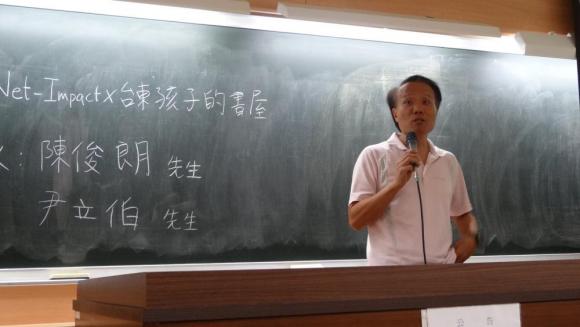 Net-Impact x 台東孩子的書屋
：陳俊朗 先生
尹立伯 先生